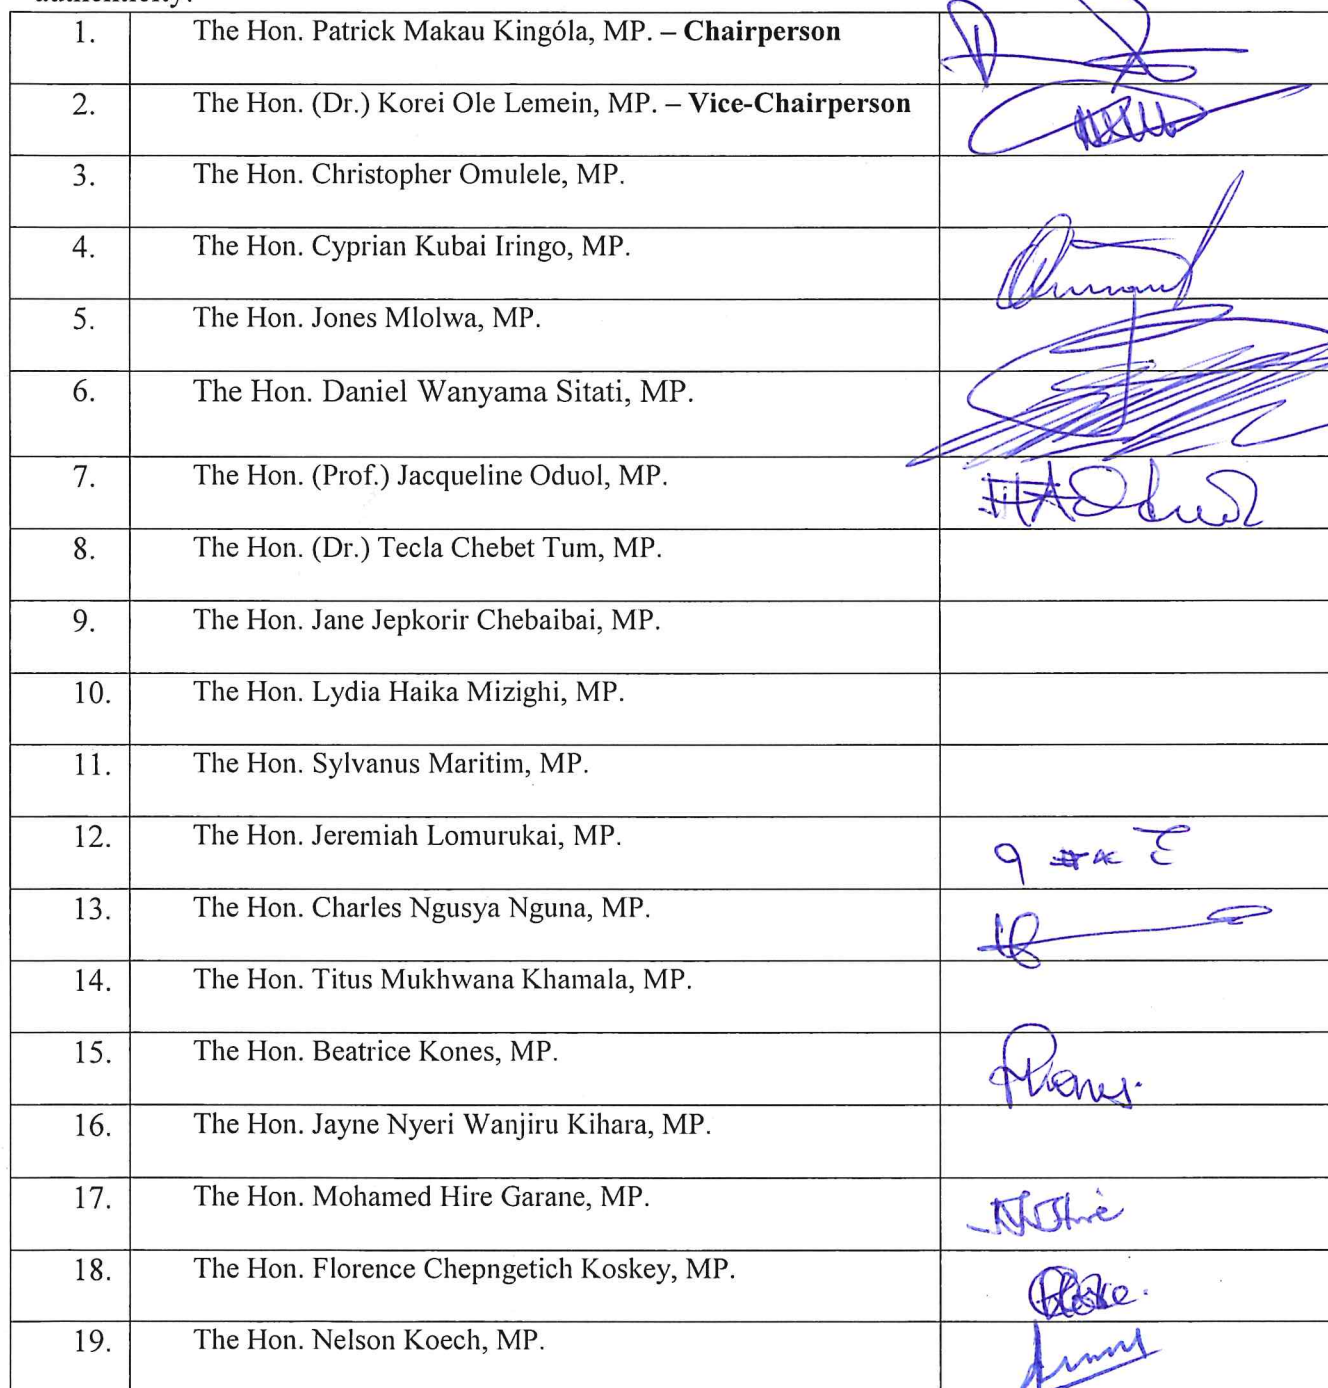 authenticity.
1. The Hon. Patrick Makau Kingóla, MP. – Chairperson
2. The Hon. (Dr.) Korei Ole Lemein, MP. – Vice-Chairperson
3. The Hon. Christopher Omulele, MP.
4. The Hon. Cyprian Kubai Iringo, MP.
5. The Hon. Jones Mlolwa, MP.
6. The Hon. Daniel Wanyama Sitati, MP.
7. The Hon. (Prof.) Jacqueline Oduol, MP.
8. The Hon. (Dr.) Tecla Chebet Tum, MP.
9. The Hon. Jane Jepkorir Chebaibai, MP.
10. The Hon. Lydia Haika Mizighi, MP.
11. The Hon. Sylvanus Maritim, MP.
12. The Hon. Jeremiah Lomurukai, MP.
13. The Hon. Charles Ngusya Nguna, MP.
14. The Hon. Titus Mukhwana Khamala, MP.
15. The Hon. Beatrice Kones, MP.
16. The Hon. Jayne Nyeri Wanjiru Kihara, MP.
17. The Hon. Mohamed Hire Garane, MP.
18. The Hon. Florence Chepngetich Koskey, MP.
19. The Hon. Nelson Koech, MP.